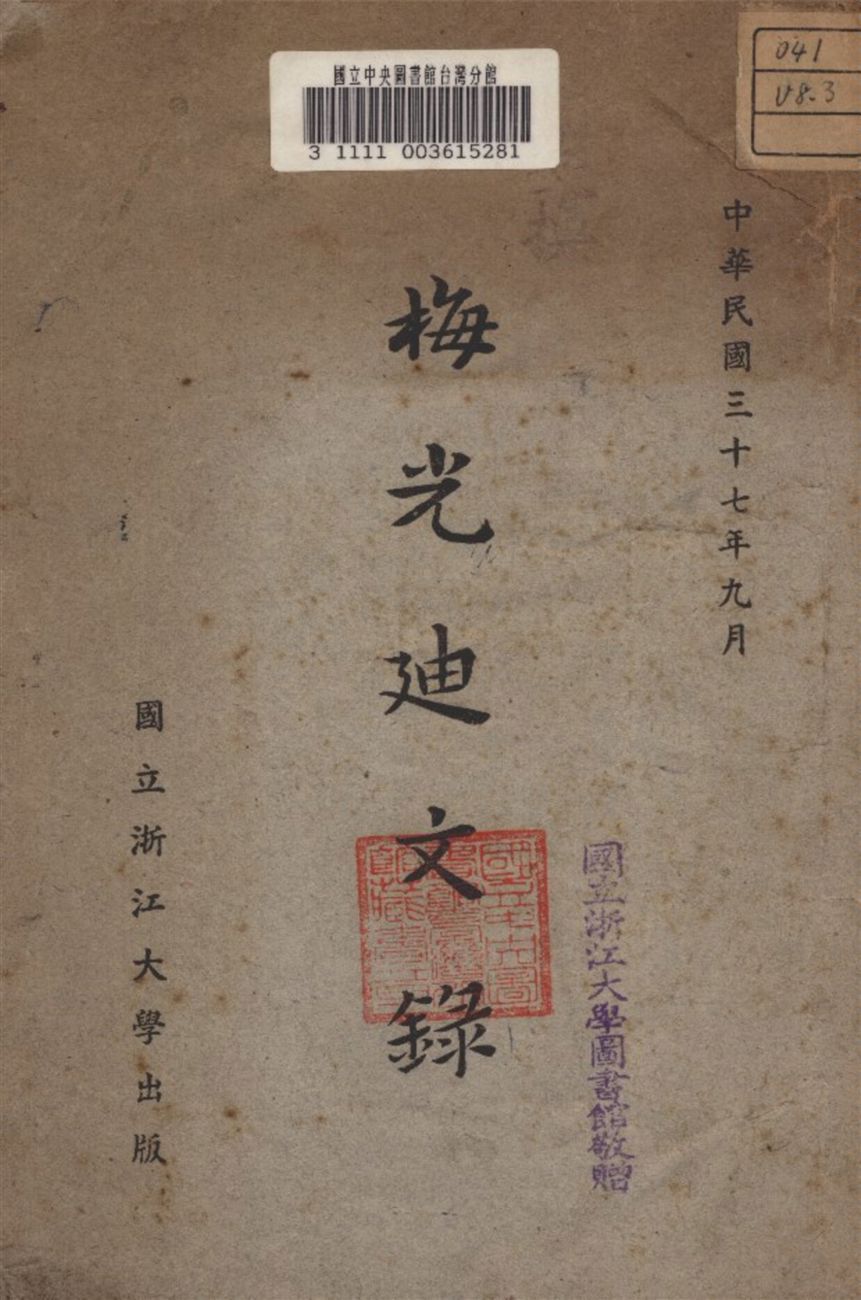 國立中央圖書館台灣分館
3 1111 003615281
041
V8.3
中華民國三十七年九月
梅光迪文錄
國立浙江大學出版
國立浙江大學圖書館敬贈